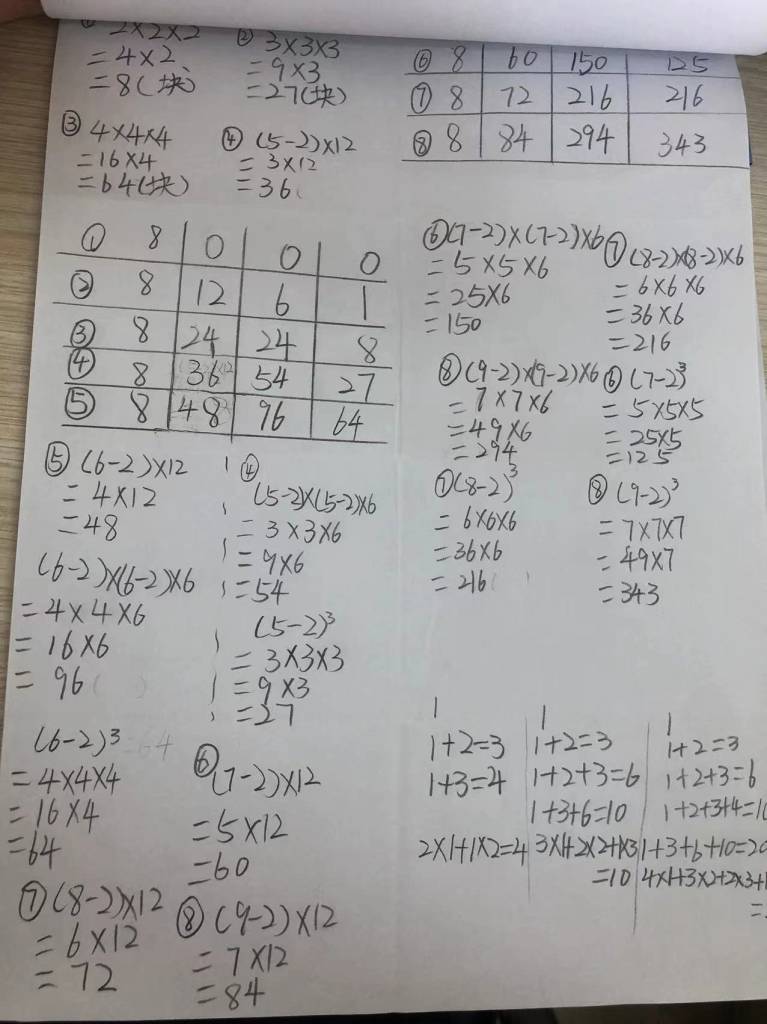 ① 2×2×2
=4×2
=8(块)
② 3×3×3
=9×3
=27(块)
③ 4×4×4
=16×4
=64(块)
④ (5-2)×12
=3×12
=36(
⑥ 8 60 150 125
⑦ 8 72 216 216
⑧ 8 84 294 343
① 8 0 0 0
② 8 12 6 1
③ 8 24 24 8
④ 8 36 54 27
⑤ 8 48 96 64
⑤ (6-2)×12
=4×12
=48
(6-2)×(6-2)×6
=4×4×6
=16×6
=96
(6-2)³=64
=4×4×4
=16×4
=64
④
(5-2)×(5-2)×6
=3×3×6
=9×6
=54
(5-2)³
=3×3×3
=9×3
=27
⑥ (7-2)×12
=5×12
=60
⑦ (8-2)×12
=6×12
=72
⑧ (9-2)×12
=7×12
=84
⑥ (7-2)×(7-2)×6
=5×5×6
=25×6
=150
⑦ (8-2)×(8-2)×6
=6×6×6
=36×6
=216
⑧ (9-2)×(9-2)×6
=7×7×6
=49×6
=294
⑥ (7-2)³
=5×5×5
=25×5
=125
⑦ (8-2)³
=6×6×6
=36×6
=216
⑧ (9-2)³
=7×7×7
=49×7
=343
1
1+2=3
1+3=4
2×1+1×2=4
1
1+2=3
1+2+3=6
1+3+6=10
3×1+2×2+1×3
=10
1
1+2=3
1+2+3=6
1+2+3+4=10
1+3+6+10=20
4×1+3×2+2×3+1
=